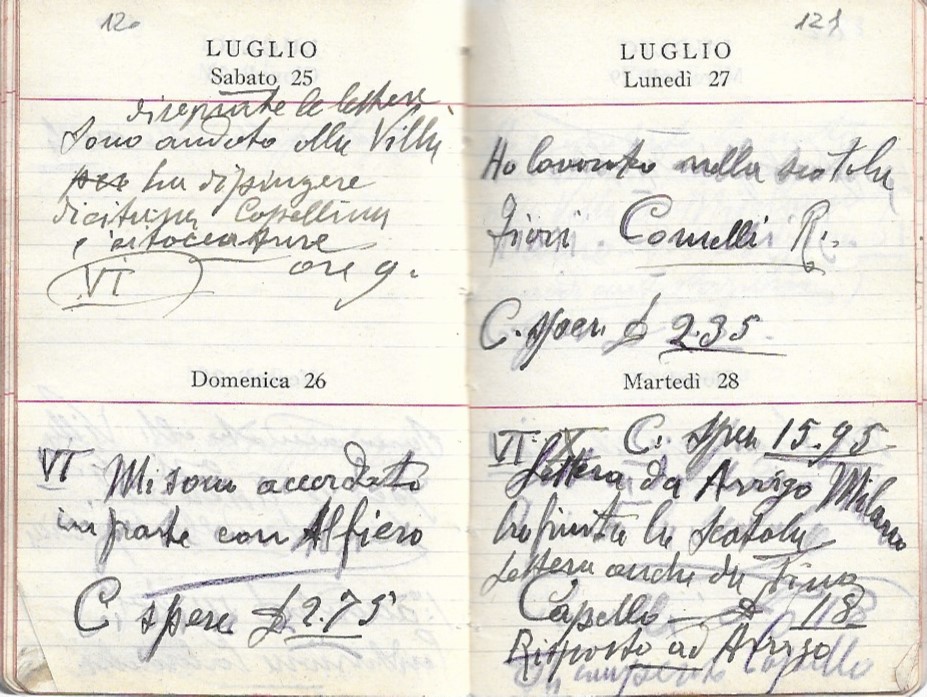 120
LUGLIO
Sabato 25
disegnate le lettere
Sono andato alla Villa
per ha dipingere
dicitura Capellina
e ritoccature
ore 9.
VI
Domenica 26
VI Mi sono accordato
in parte con Alfiero
C spese £ 2.75
121
LUGLIO
Lunedì 27
Ho lavorato nella scatola
fiori. Comelli R.
C. spese £ 2.35
Martedì 28
VI C. spese 15.95
Lettera da Arrigo Milano
ho finito la scatola
Lettera anche da Tina
Capello — £ 118
Risposto ad Arrigo
Capello